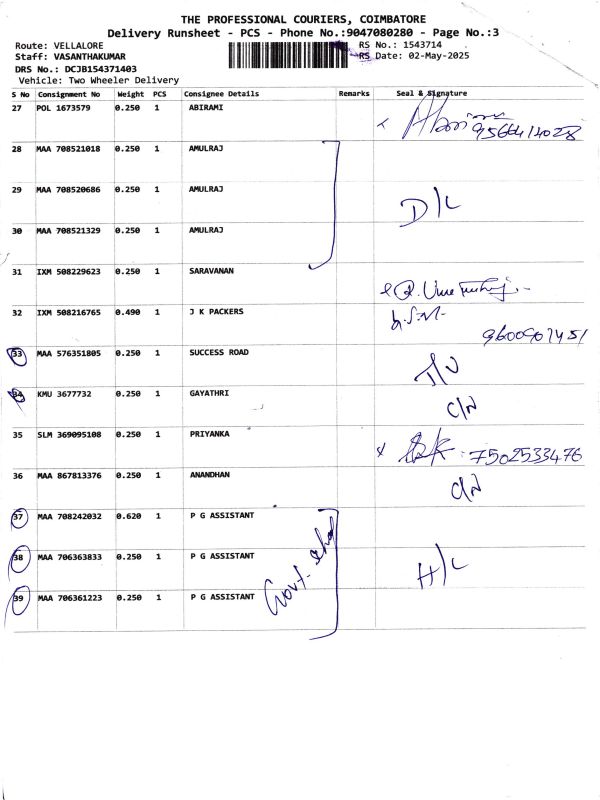 THE PROFESSIONAL COURIERS, COIMBATORE
Delivery Runsheet - PCS - Phone No.:9047080280 - Page No.:3
Route: VELLALORE
RS No.: 1543714
Staff: VASANTHAKUMAR
RS Date: 02-May-2025
DRS No.: DCJB154371403
Vehicle: Two Wheeler Delivery
S No Consignment No Weight PCS Consignee Details Remarks Seal & Signature
27 POL 1673579 0.250 1 ABIRAMI
28 MAA 708521018 0.250 1 AMULRAJ
29 MAA 708520686 0.250 1 AMULRAJ D/L
30 MAA 708521329 0.250 1 AMULRAJ
31 IXM 508229623 0.250 1 SARAVANAN
32 IXM 508216765 0.490 1 J K PACKERS
9600907451
33 MAA 576351805 0.250 1 SUCCESS ROAD
34 KMU 3677732 0.250 1 GAYATHRI C/N
35 SLM 369095108 0.250 1 PRIYANKA 7502533476
36 MAA 867813376 0.250 1 ANANDHAN C/N
37 MAA 708242032 0.620 1 P G ASSISTANT
38 MAA 706363833 0.250 1 P G ASSISTANT H/L
39 MAA 706361223 0.250 1 P G ASSISTANT Govt.